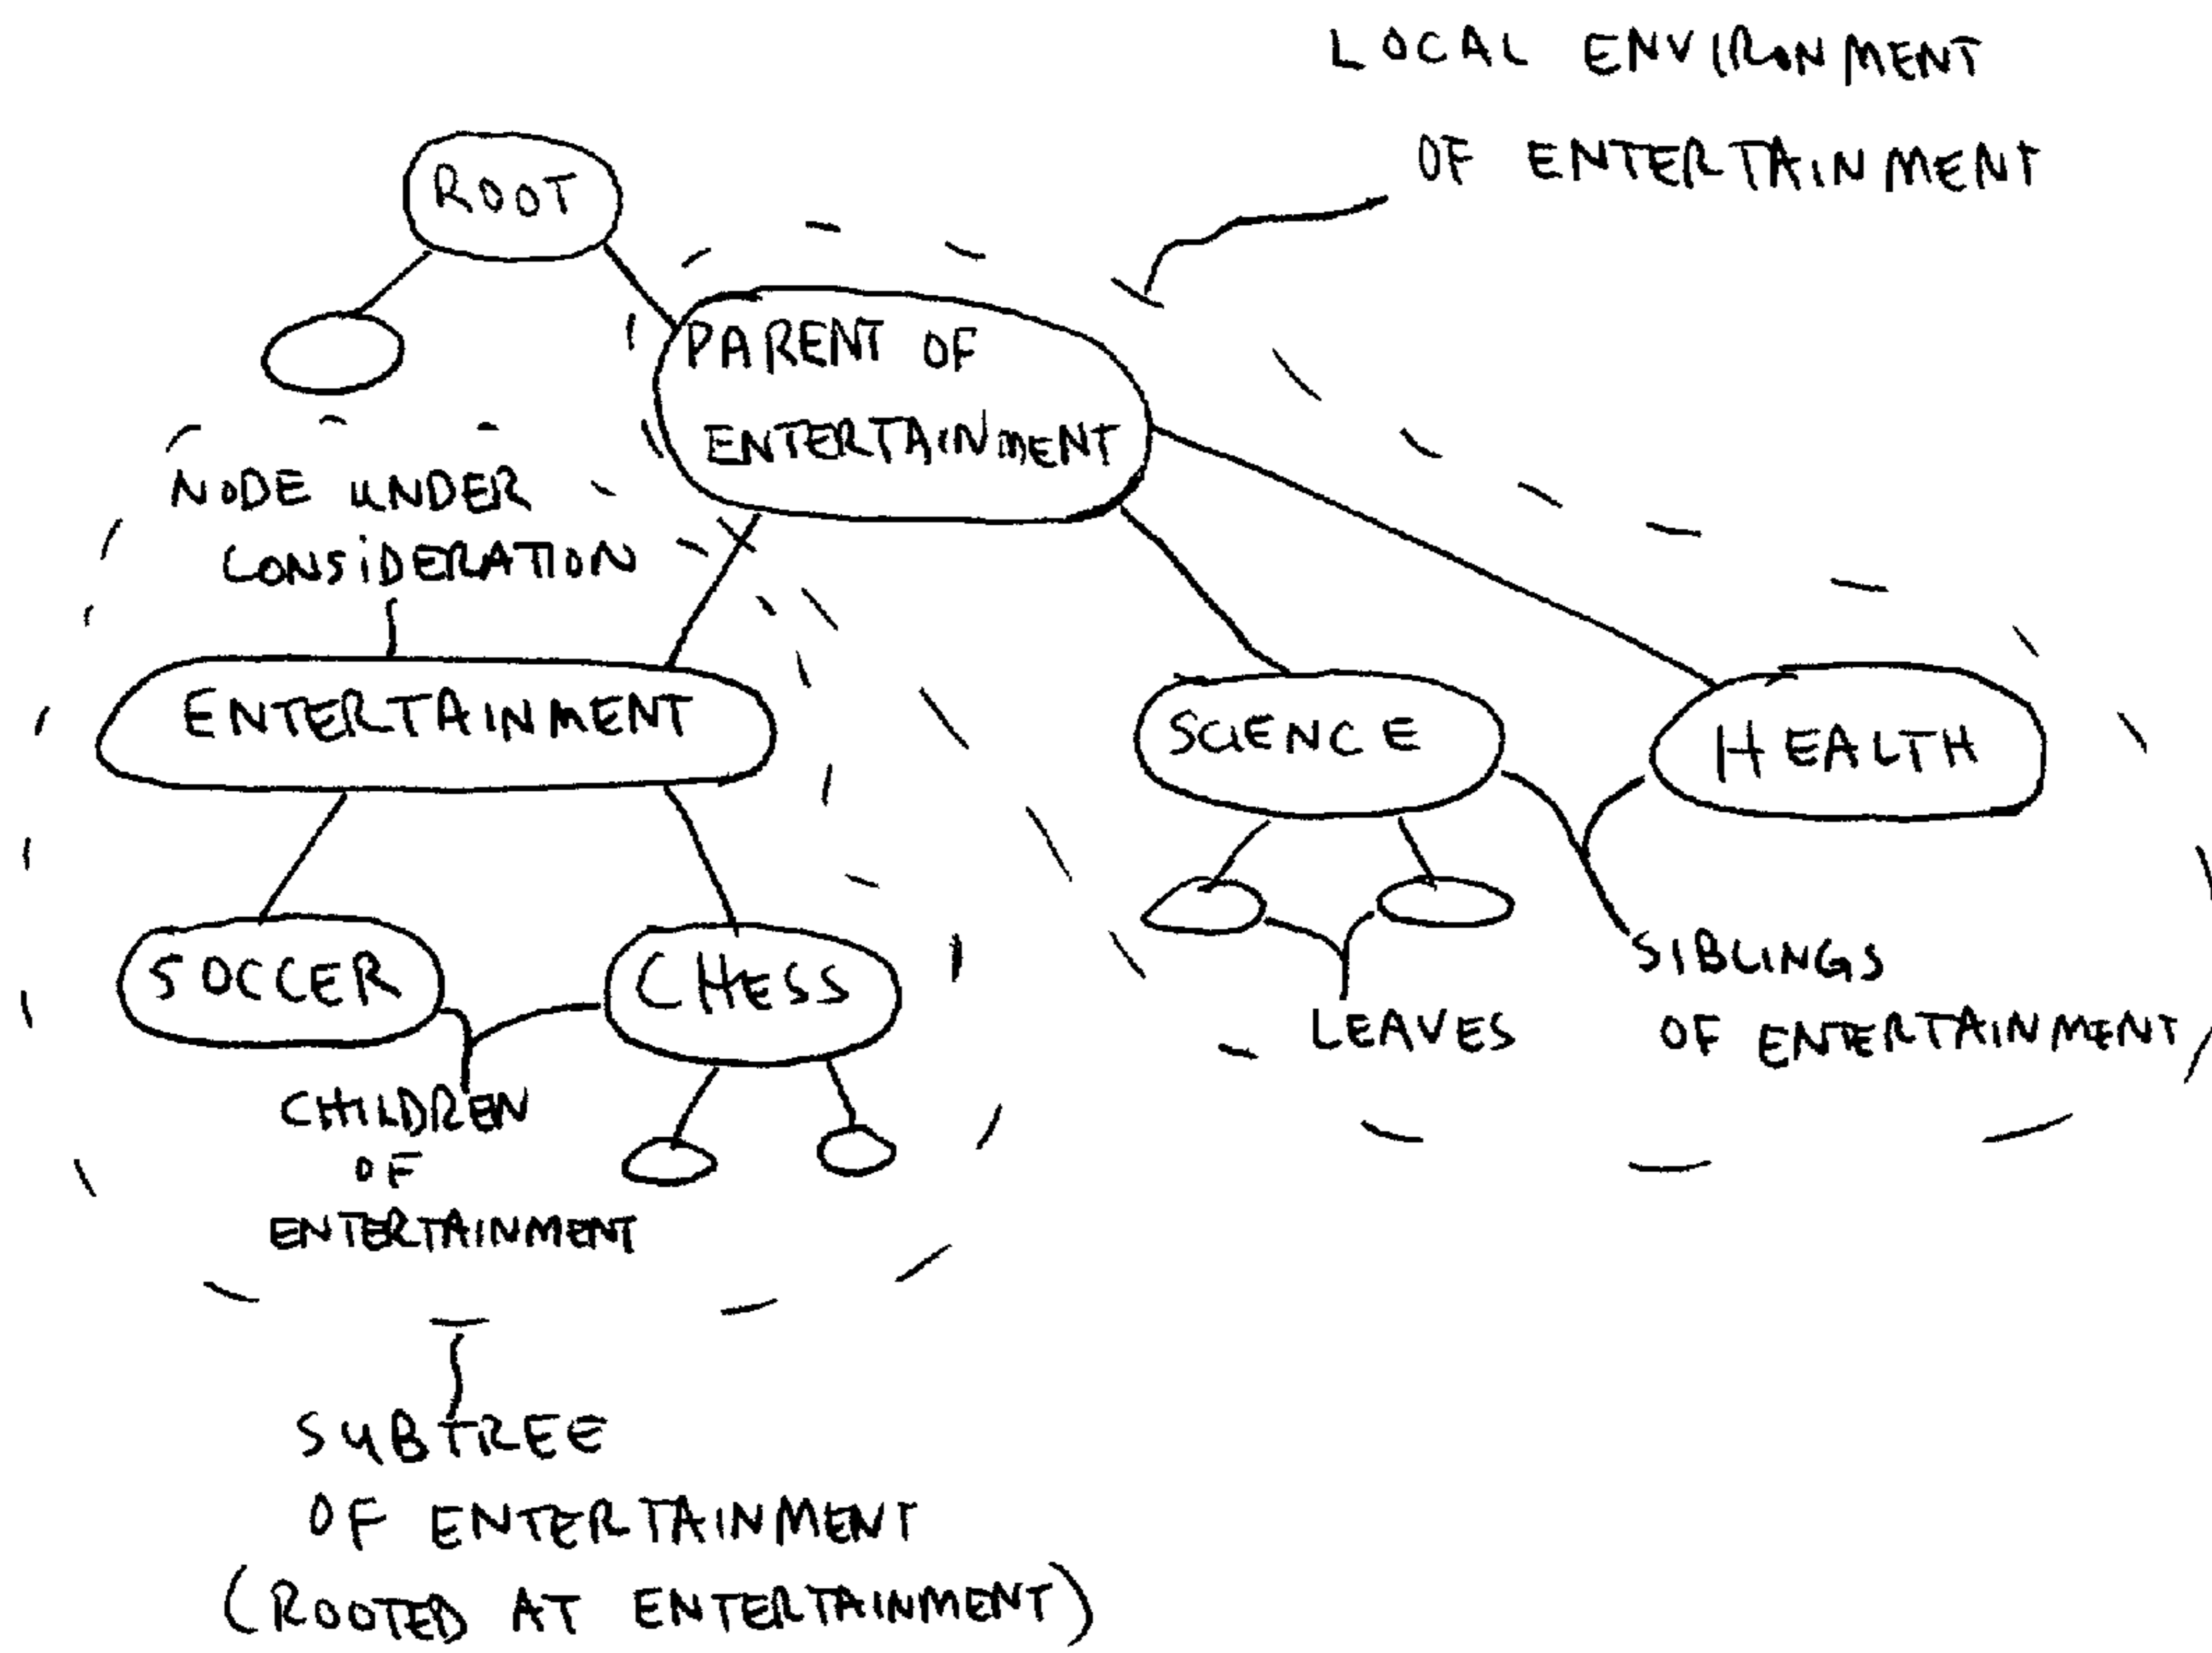 LOCAL ENVIRONMENT
OF ENTERTAINMENT
ROOT
PARENT OF
ENTERTAINMENT
NODE UNDER
CONSIDERATION
ENTERTAINMENT
SCIENCE
HEALTH
SOCCER
CHESS
SIBLINGS
OF ENTERTAINMENT
LEAVES
CHILDREN
OF
ENTERTAINMENT
SUBTREE
OF ENTERTAINMENT
(ROOTED AT ENTERTAINMENT)